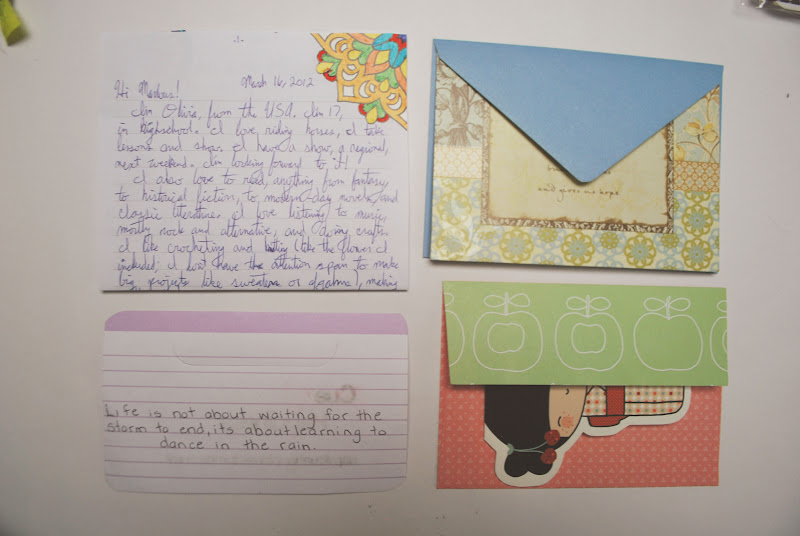 -1-
Hi Markus! March 16, 2012
I'm Olivia, from the USA. I'm 17,
in highschool. I love riding horses, I take
lessons and show. I have a show, a regional,
next weekend. I'm looking forward to it!
I also love to read, anything from fantasy,
to historical fiction, to modern-day novels, and
classic literature. I love listening to music,
mostly rock and alternative, and doing crafts.
I like crocheting and (like the flower I
included; I don't have the attention span to make
big projects like sweaters or afghans), making
and gives us hope
Life is not about waiting for the
storm to end, its about learning to
dance in the rain.